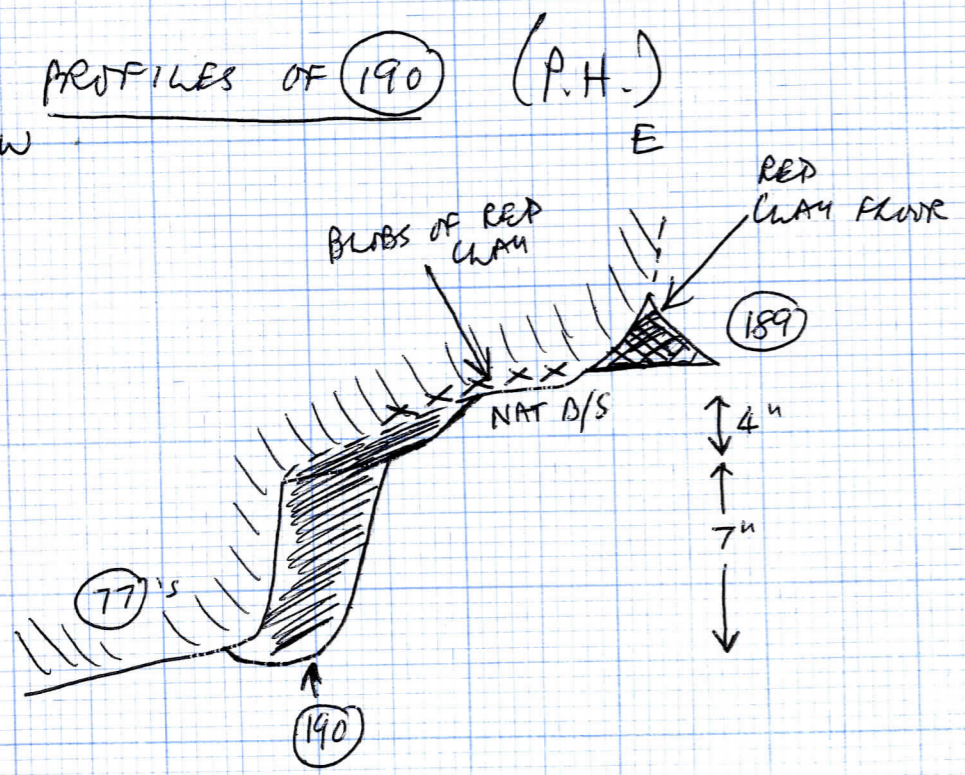 PROFILES OF 190 (P.H.)
W
E
RED
CLAY FLOOR
BLOBS OF RED
CLAY
189
NAT B/S
4"
7"
77's
190